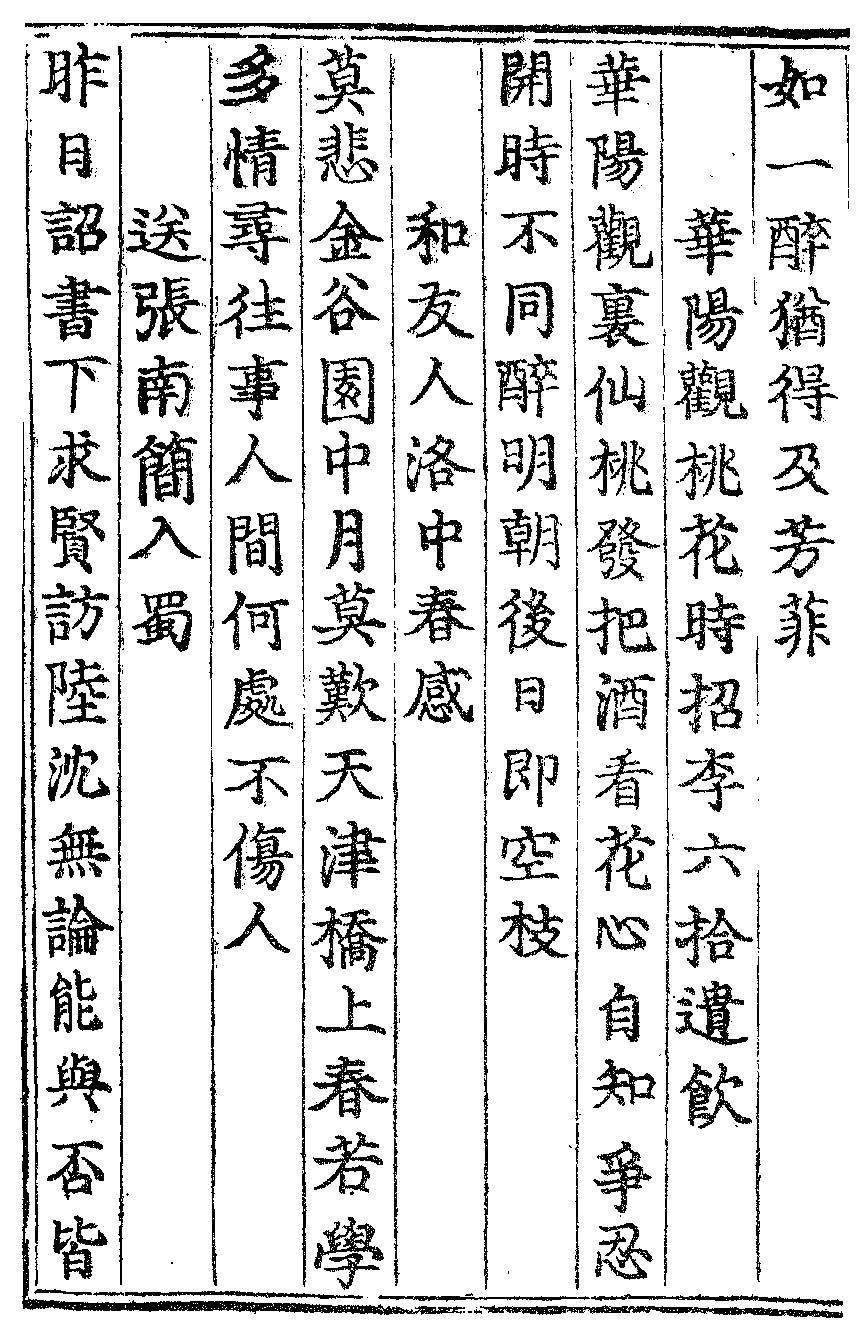 如一醉猶得及芳菲
華陽觀桃花時招李六拾遺飲
華陽觀裏仙桃發把酒看花心自知爭忍
開時不同醉明朝後日即空枝
和友人洛中春感
莫悲金谷園中月莫歎天津橋上春若學
多情尋往事人間何處不傷人
送張南簡入蜀
昨日詔書下求賢訪陸沈無論能與否皆